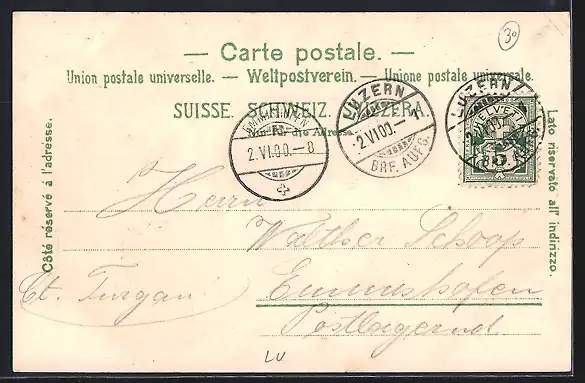 30
— Carte postale. —
Union postale universelle. — Weltpostverein. — Unione postale universale.
SUISSE. SCHWEIZ. SVIZZERA.
Nur für die Adresse.
Côté réservé à l'adresse.
Lato riservato all' indirizzo.
2.VI.00.-8
LUZERN
2.VI.00.- 7
BRF. AUFG.
LUZERN
2.VI.00.
BRF. AUFG.
HELVETIA
5
Herrn
Walther Schoop
Emmishofen
Ct. Turgau
Postlagernd
LU